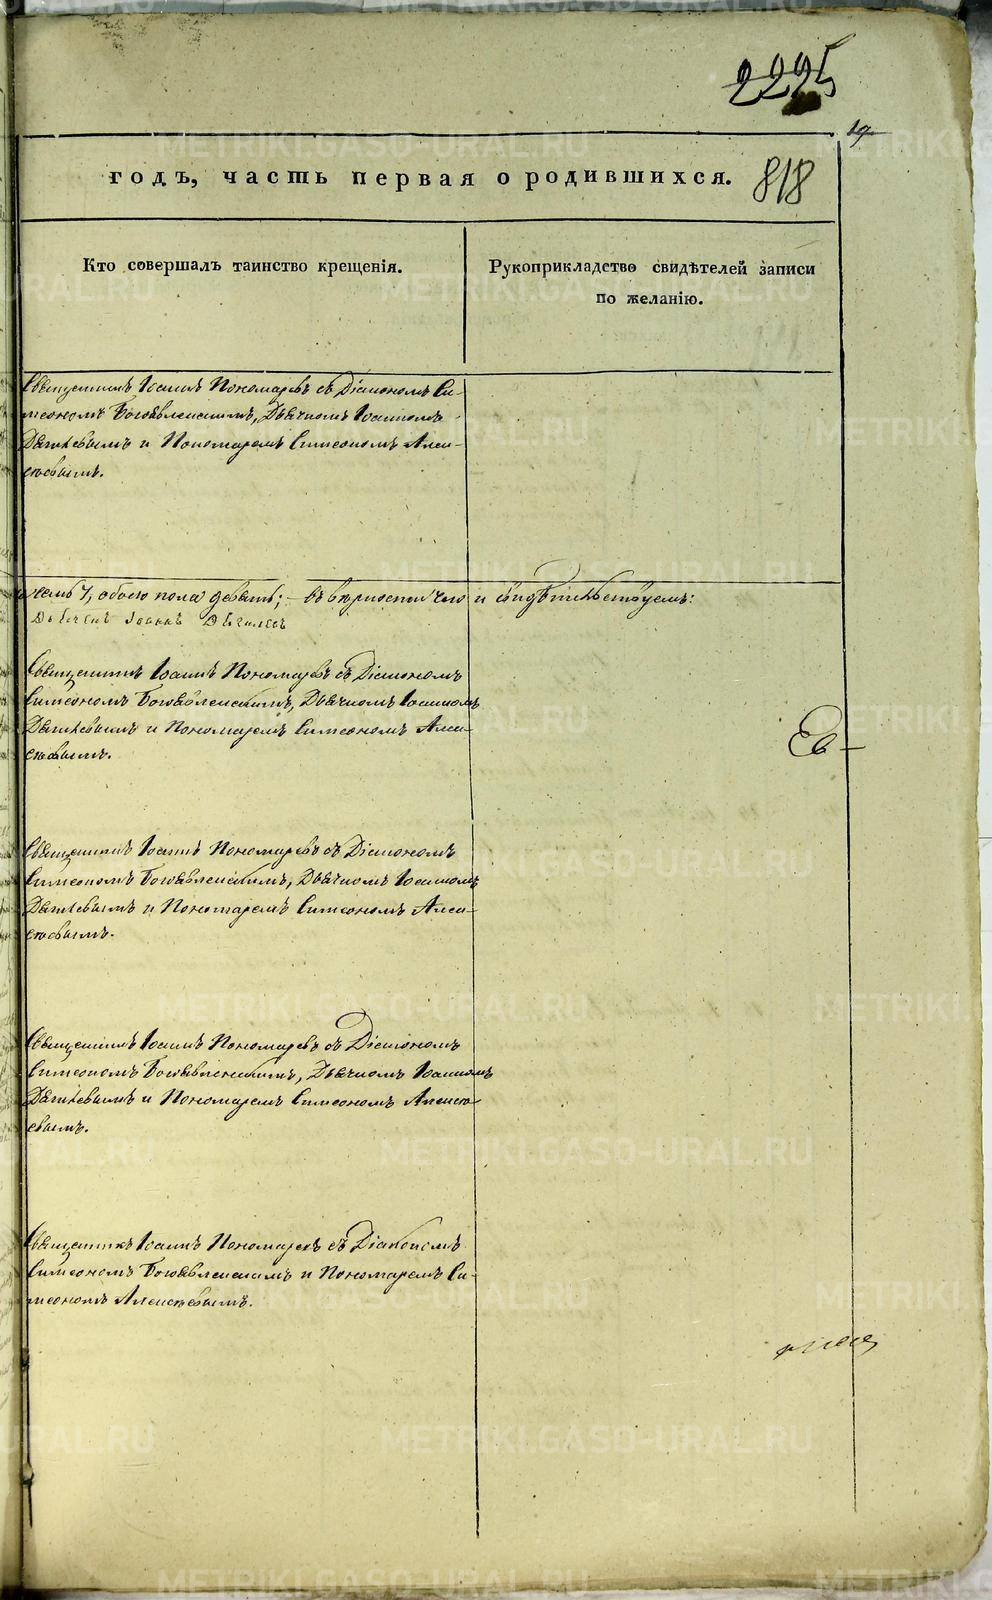 2225
19
годъ, часть первая о родившихся. 818
Кто совершалъ таинство крещенія.
Рукоприкладство свидѣтелей записи
по желанію.
Священникъ Іоаннъ Пономаревъ съ Діакономъ Си-
меономъ Богоявленскимъ, Дьячкомъ Іоанномъ
и Пономаремъ Симеономъ Алек-
сѣевымъ.
7, обоего пола девять; – въ вѣрности чего и свидѣтельствуемъ:
Дьячекъ Іоаннъ
Священникъ Іоаннъ Пономаревъ съ Діакономъ
Симеономъ Богоявленскимъ, Дьячкомъ Іоанномъ
и Пономаремъ Симеономъ Алек-
сѣевымъ.
Ев-
Священникъ Іоаннъ Пономаревъ съ Діакономъ
Симеономъ Богоявленскимъ, Дьячкомъ Іоанномъ
и Пономаремъ Симеономъ Алек-
сѣевымъ.
Священникъ Іоаннъ Пономаревъ съ Діакономъ
Симеономъ Богоявленскимъ, Дьячкомъ Іоанномъ
и Пономаремъ Симеономъ Алексѣ-
евымъ.
Священникъ Іоаннъ Пономаревъ съ Діакономъ
Симеономъ Богоявленскимъ и Пономаремъ Си-
меономъ Алексѣевымъ.
METRIKI.GASO-URAL.RU